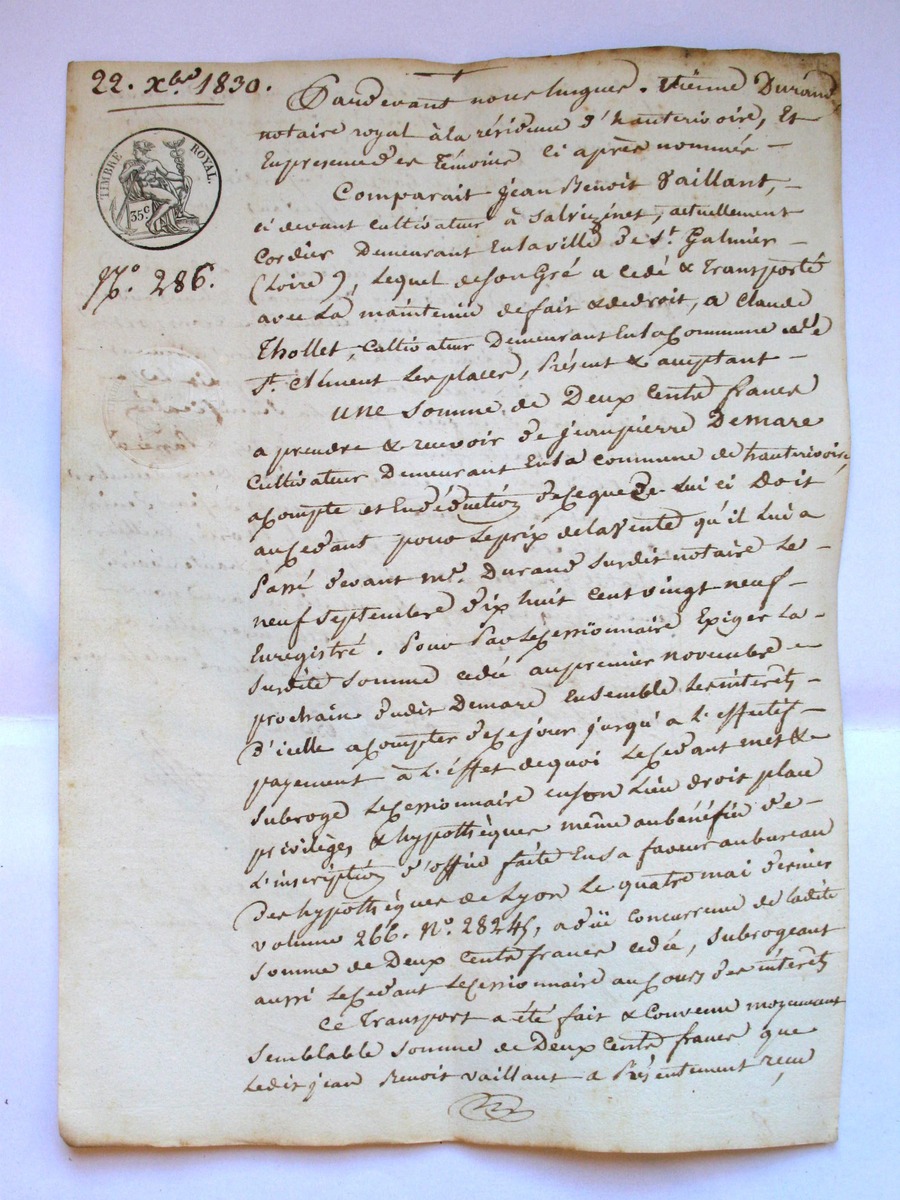 22. Xbre 1830.
TIMBRE ROYAL.
35c
No. 286.
Pardevant nous hugues. Etienne Durand
notaire royal à la résidence d'hauterivoire, Et
En presence des Témoins ci après nommés —
Comparait jean Benoit Vaillant, —
ci devant cultivateur à Salvizinet, actuellement
Cordier Demeurant En la ville de St. Galmier —
(Loire), Lequel de son Gré a cédé & Transporté
avec La maintenue de fait & de droit, a Claude
Thollet, cultivateur Demeurant En la Commune de
St. Clément Les places, Présent & acceptant —
une somme de Deux Cents francs
a prendre & recevoir de jean pierre Demare
cultivateur Demeurant En la commune de hauterivoire,
acompte et En déduction de ce que De Lui ci Doit
au Cedant pour Le prix de la Vente qu'il Lui a
Passé devant me. Durand susdit notaire Le —
neuf septembre dix huit cent vingt neuf —
Enregistré. Pour Par Le Cessionnaire Exiger La —
susdite somme cédée au premier novembre —
prochain dudit Demare Ensemble Les intérêts —
d'icelle a compter de ce jour jusqu'à L'effectif —
payement à L'effet de quoi Le Cedant met & —
subroge Le Cessionnaire en son Lieu droit place
privilèges & hypothèques même au bénéfice de —
L'inscription d'office faite En sa faveur au bureau
des hypothèques de Lyon Le quatre mai dernier
volume 266. No. 28245, a düe concurrence de ladite
somme de Deux Cents francs cédée, subrogeant
aussi Le Cedant Le Cessionnaire au Cours des intérêts
Ce Transport a été fait & Convenu moyennant
semblable somme de Deux Cents francs que
Ledit jean Benoit vaillant a Présentement reçu